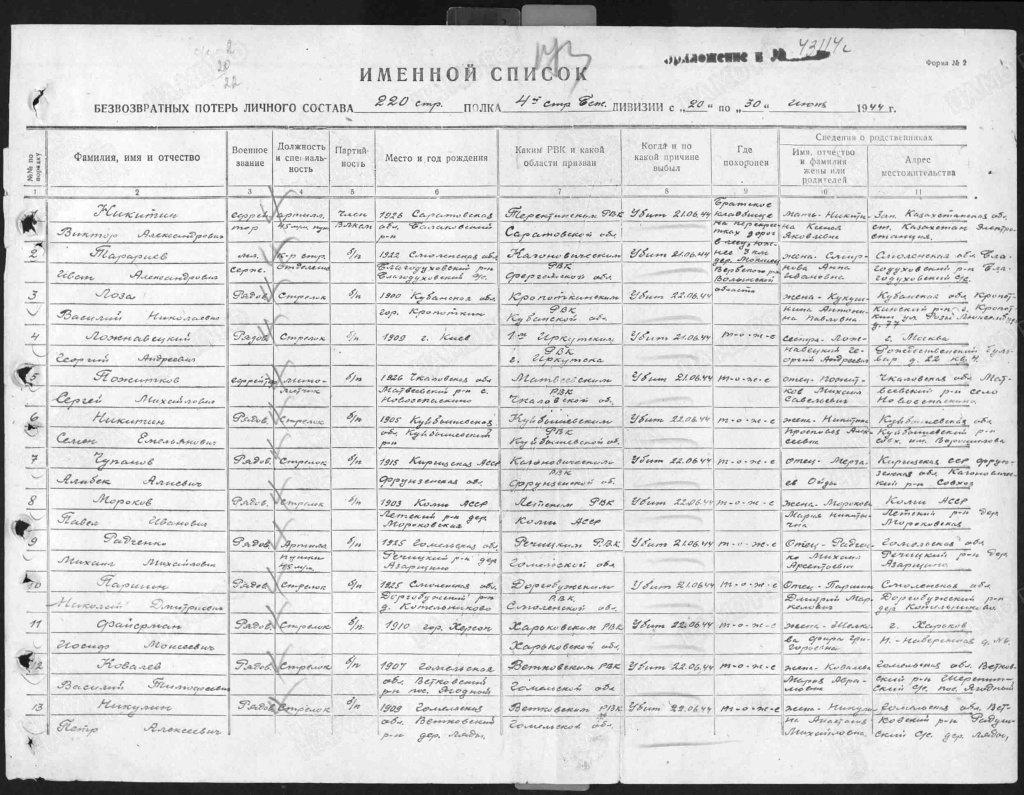 Приложение к № 43114с
Форма № 2
ИМЕННОЙ СПИСОК
БЕЗВОЗВРАТНЫХ ПОТЕРЬ ЛИЧНОГО СОСТАВА 220 стр. ПОЛКА 4й стр Беж. ДИВИЗИИ с „20“ по „30“ июня 1944 г.
№№ по порядку
Фамилия, имя и отчество
Военное звание
Должность и специальность
Партийность
Место и год рождения
Каким РВК и какой области призван
Когда и по какой причине выбыл
Где похоронен
Сведения о родственниках
Имя, отчество и фамилия жены или родителей
Адрес местожительства
1 2 3 4 5 6 7 8 9 10 11
Никитин Виктор Александрович
член ВЛКСМ
1926 Саратовская обл. Балаковский р-н
РВК Саратовской обл
Убит 21.06.44
Братское кладбище на перекрестках дорог
Волынской области
мать-Никитина Ксения Яковлевна
2 Тарариев Иван Александрович
мл. серж.
к-р стр. отделения
б/п
1922 Смоленская обл
Кагановическим РВК Ферганской обл
Убит 21.06.44
Анна Ивановна
Смоленская обл.
3 Лоза Василий Николаевич
Рядов.
Стрелок
б/п
1900 Кубанская обл гор. Кропоткин
Кропоткинским РВК Кубанской обл
Убит 22.06.44
Антонина Павловна
Кубанская обл Кропоткинский р-н г. Кропоткин ул Розы Люксембург д. 77
4 Ложнавецкий Георгий Андреевич
Рядов
Стрелок
б/п
1909 г. Киев
1м Иркутским РВК г. Иркутска
Убит 21.06.44
т-о-ж-е
г. Москва Рождественский бульвар д. 22 кв
5 Пожитков Сергей Михайлович
ефрейтор
минометчик
б/п
1926 Чкаловская обл Матвеевский р-н с.
Матвеевским РВК Чкаловской об.
Убит 21.06.44
т-о-ж-е
отец-Пожитков Михаил Савельевич
Чкаловская обл Матвеевский р-н село
6 Никитин Семен Емельянович
Рядов.
Стрелок
б/п
1905 Куйбышевская об. Куйбышевский р-н
Куйбышевским РВК Куйбышевской об.
Убит 22.06.44
т-о-ж-е
жена-Никитина Алексеевна
Куйбышевская обл Куйбышевский р-н свх. им. Ворошилова
7 Чупанов Алибек Алиевич
Рядов.
Стрелок
б/п
1915 Киргизская АССР Фрунзенская об.
Кагановическим РВК Фрунзенской об.
Убит 22.06.44
т-о-ж-е
Киргизская ССР Фрунзенская об. Кагановический р-н Совхоз
8 Мороков Павел Иванович
Рядов.
Стрелок
б/п
1903 Коми АССР Летский р-н дер Мороковская
Летским РВК Коми АССР
Убит 22.06.44
т-о-ж-е
жена-Морокова Мария Никитична
Коми АССР Летский р-н дер Мороковская
9 Радченко Михаил Михайлович
Рядов.
б/п
1925 Гомельская обл. Речицкий р-н дер Азарщина
Речицким РВК Гомельской об.
Убит 21.06.44
т-о-ж-е
Отец-Радченко Михаил Арсентьевич
Гомельская обл Речицкий р-н дер Азарщина
10 Паршин Николай Дмитриевич
Рядов.
Стрелок
б/п
1925 Смоленская обл. Дорогобужский р-н д. Котельниково
Дорогобужским РВК Смоленской обл
Убит 21.06.44
т-о-ж-е
Отец-Паршин Дмитрий Маркелович
Смоленская обл Дорогобужский р-н дер Котельниково
11 Файерман Иосиф Моисеевич
Рядов.
Стрелок
б/п
1910 гор. Херсон
Харьковским РВК Харьковской обл
Убит 22.06.44
т-о-ж-е
г. Харьков
12 Ковалев Василий Тимофеевич
Рядов.
Стрелок
б/п
1907 Гомельская обл. Ветковский р-н пос. Ягодной
Ветковским РВК Гомельской обл
Убит 22.06.44
т-о-ж-е
жена-Ковалева Мария Абрамовна
Гомельская обл. Ветковский р-н пос. Ягодный
13 Никулин Петр Алексеевич
Рядов.
Стрелок
б/п
1909 Гомельская обл. Ветковский р-н дер. Ляды,
Ветковским РВК Гомельской обл
Убит 22.06.44
т-о-ж-е
жена-Никулина Анастасия Михайловна
Гомельская обл. Ветковский р-н дер. Ляды,